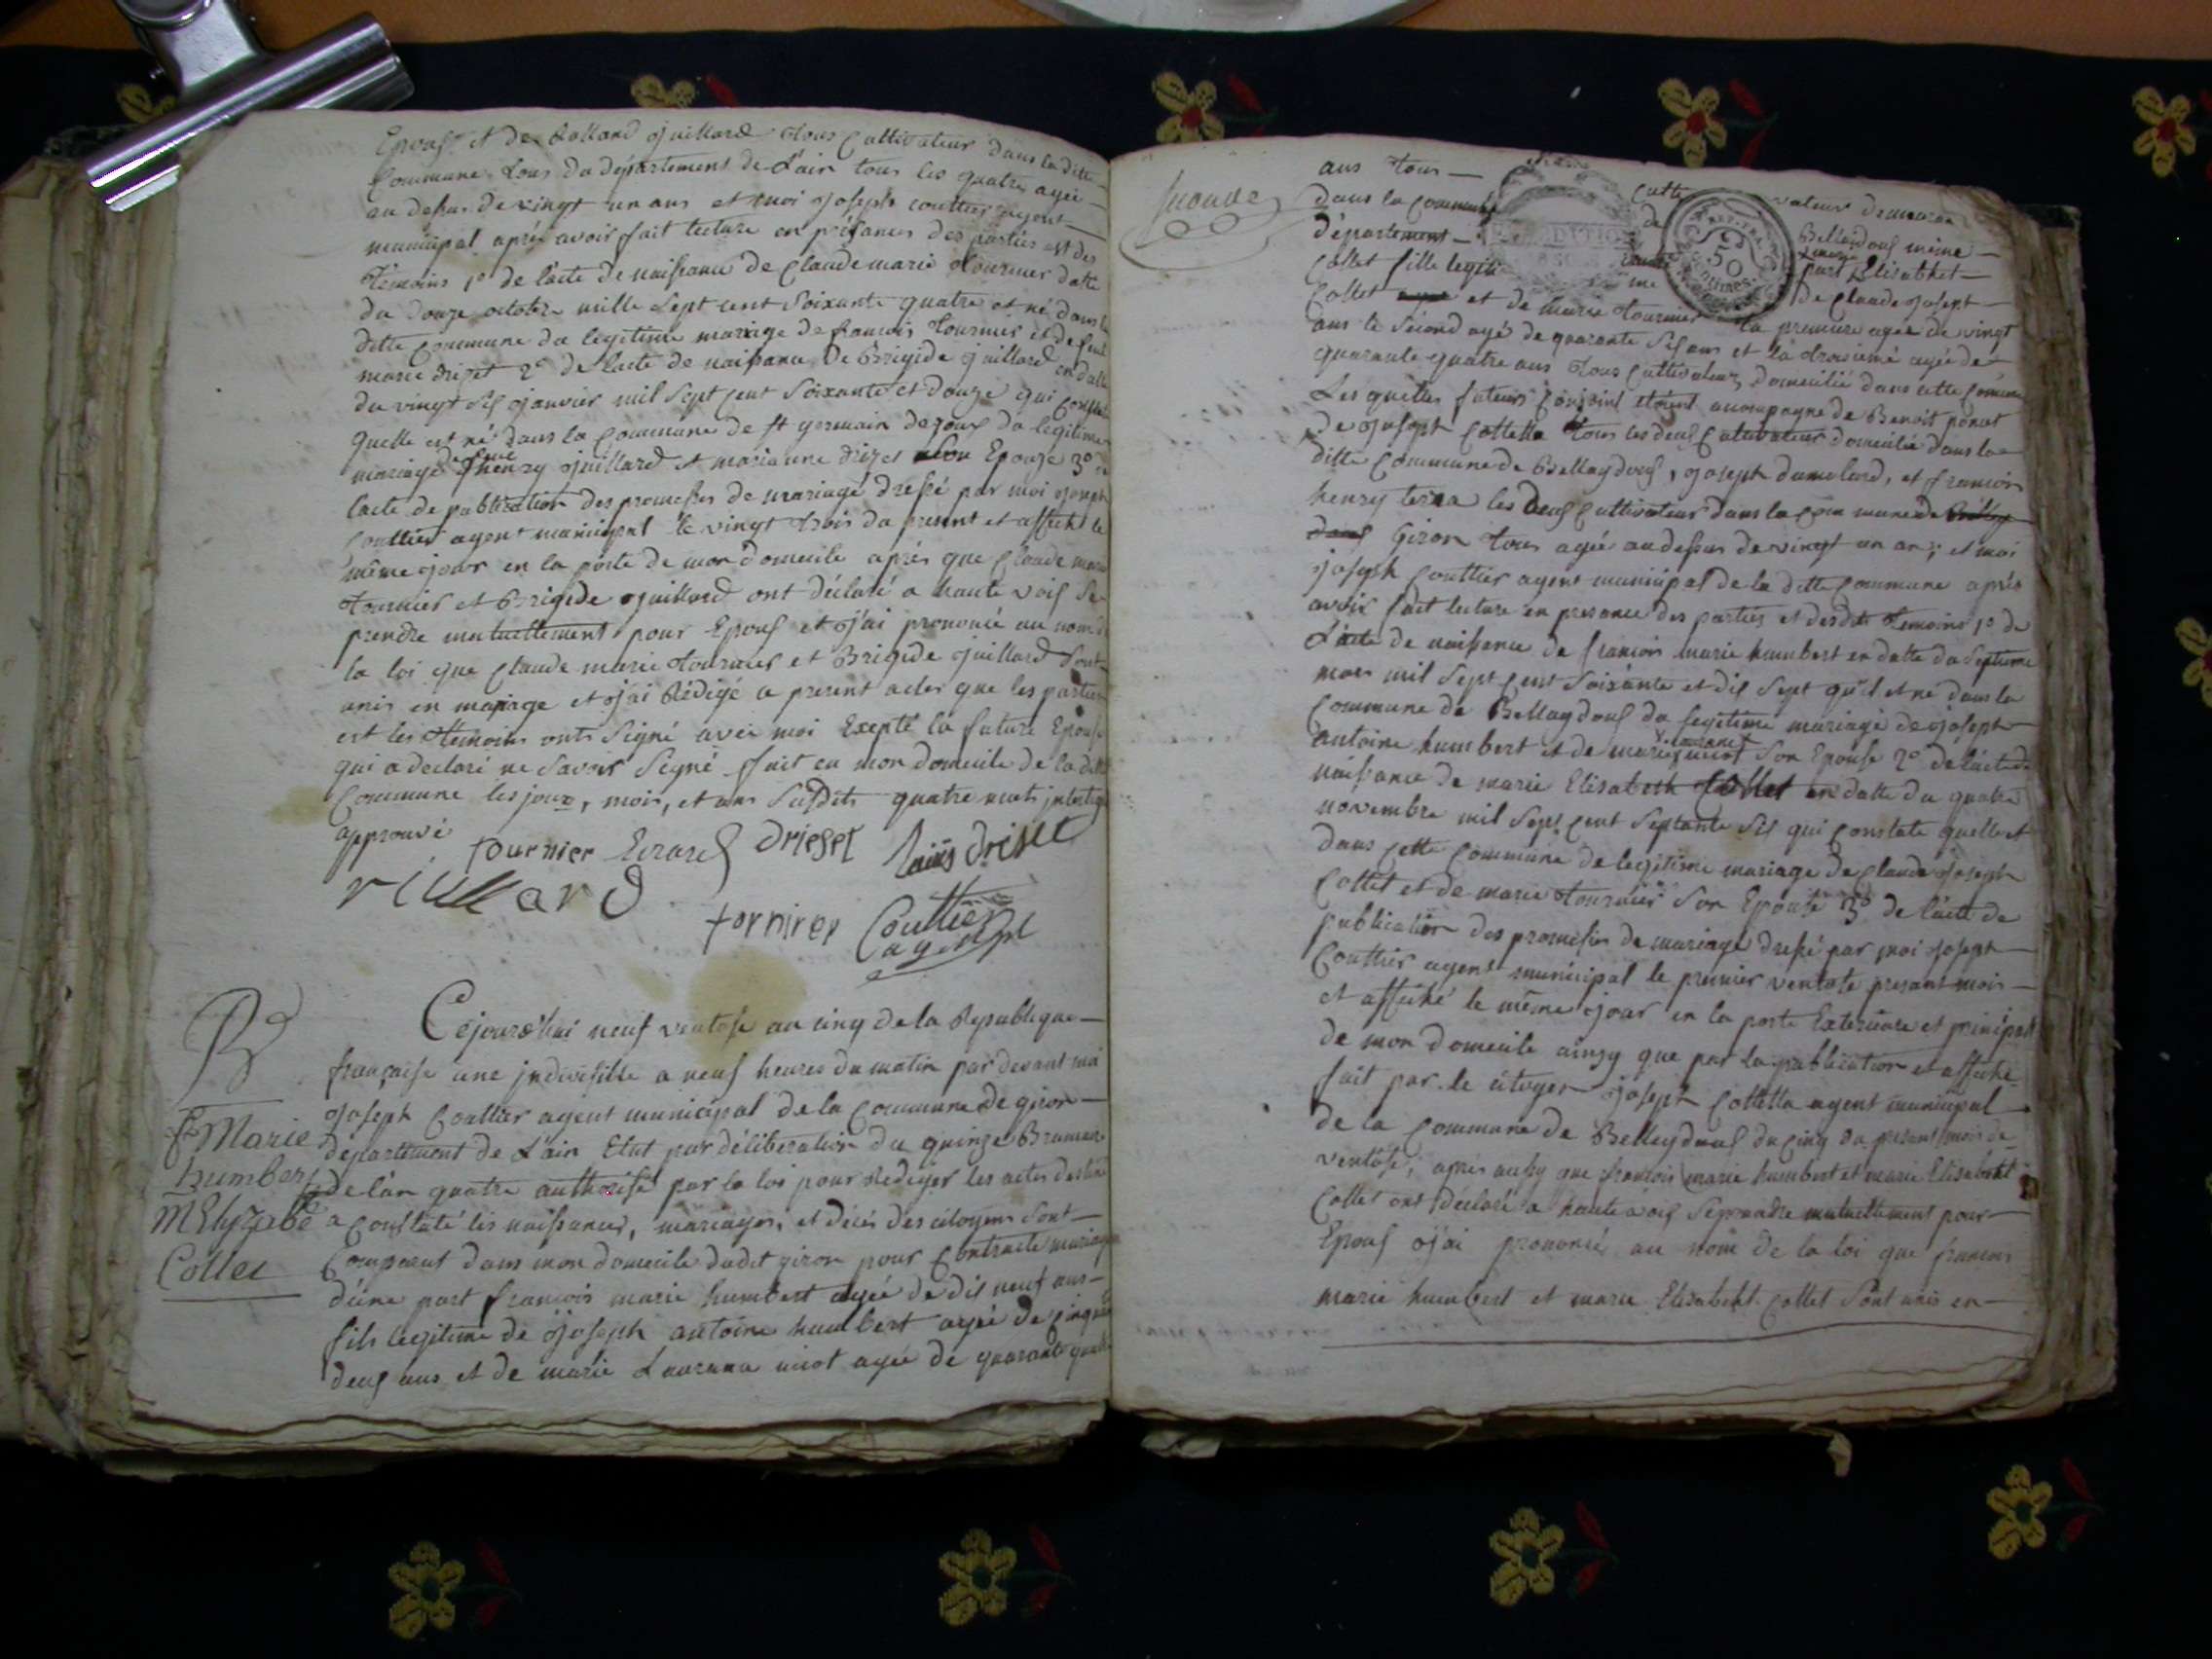 Epouse et de Rolland juillard tous Cultivateur dans la ditte
Commune tous du département de L'ain tous les quatre agée
au dessus de vingt un ans et moi joseph couttier agent
municipal aprés avoir fait lecture en présances des parties et des
Témoins 1° de l'acte de naissance de Claude marie tournier datte
du douze octobre mille sept cent soixante quatre et né dans la
ditte Commune du legitime mariage de francois tournier et de
marie drizet 2° de lacte de naissance de Brigide juillard en datte
du vingt sis janvier mil sept cent soixante et douze qui
quelle est né dans la Commune de st germain de joux du legitime
mariage henry juillard et marianne drizet Epouze 3°
lacte de publication des promesses de mariage dressé par moi joseph
Couttier agent municipal le vingt trois du present et affiché le
même jour en la porte de mon domicile aprés que Claude marie
tournier et Brigide juillard ont déclaré a haute vois se
prendre mutuellement pour Epous et j'ai prononcé au nom de
la loi que Claude marie tournier et Brigide juillard sont
unis en mariage et j'ai Rédigé a present actes que les parties
est les temoins onts signé avec moi Exepté la future Epouse
qui a declaré ne savoir signé fait en mon domicile de la ditte
Commune les jour, mois, et ans susdits quatre mots
approuvé
tournier Evrard driesel
drisel
tornirer Couttier
agent
Cejourd'hui neuf ventose an cinq de la Republique
française une jndivisible a neuf heures du matin par devant moi
joseph Couttier agent municipal de la Commune de giron
département de L'ain Elut par déliberation du quinze Brumaire
de l'an quatre authorisé par la loi pour Rediger les actes destiné
a Constaté les naissances, mariages, et décés des citoyens sont
Comparut dans mon domicile dudit giron pour Contracté mariage
d'une part francois marie humbert agée de dis neuf ans
fils legitime de joseph antoine humbert agée de cinquante
deus ans et de marie nicot agée de quarante quatre
f Marie
humber
M Elyzabé
Collet
ans tous
cultivateur
dans la commune de Belleydous même
département
Collet fille legitime de Claude joseph
Collet et de marie tournier la premiere agée de vingt
ans le second agé de quarante sis ans et la troisieme agée de
quarante quatre ans tous cultivateur domicilié dans cette commune
Les quelles futeurs conjoint etoient acompagné de Benoit poncet
de joseph Collette tous les deus Cultivateur domicilié dans la
ditte Commune de Belleydous, joseph dumolard, et francois
henry les deus Cultivateur dans la commune de
Giron tous agée audessus de vingt un an; et moi
joseph Couttier agent municipal de la ditte Commune aprés
avoir fait lecture en presance des parties et desdits temoins 1° de
L'acte de naissance de francois marie humbert en datte du septieme
mars mil sept cent soixante et dis sept qu'il et né dans la
Commune de Belleydous du legitime mariage de joseph
antoine humbert et de marie nicot son Epouse 2° de lacte de
naissance de marie Elisabeth Collet en datte du quatre
novembre mil sept cent septante sis qui constate quelle et
dans cette Commune de legitime mariage de Claude joseph
Collet et de marie tournier son Epouse 3° de lacte de
publication des promesses de mariage dressé par moi joseph
Couttier agent municipal le premier ventose presant mois
et affiché le même jour en la porte Exterieure et principale
de mon domicile ainsy que par la publication et affiche
fait par le citoyen joseph Collette agent municipal
de la Commune de Belleydous du cinq du presant mois de
ventose, aprés aussy que francois marie humbert et marie Elisabeht
Collet ont déclaré a haute vois se prendre mutuellement pour
Epous j'ai prononcé au nom de la loi que francois
marie humbert et marie Elisabeht Collet sont unis en